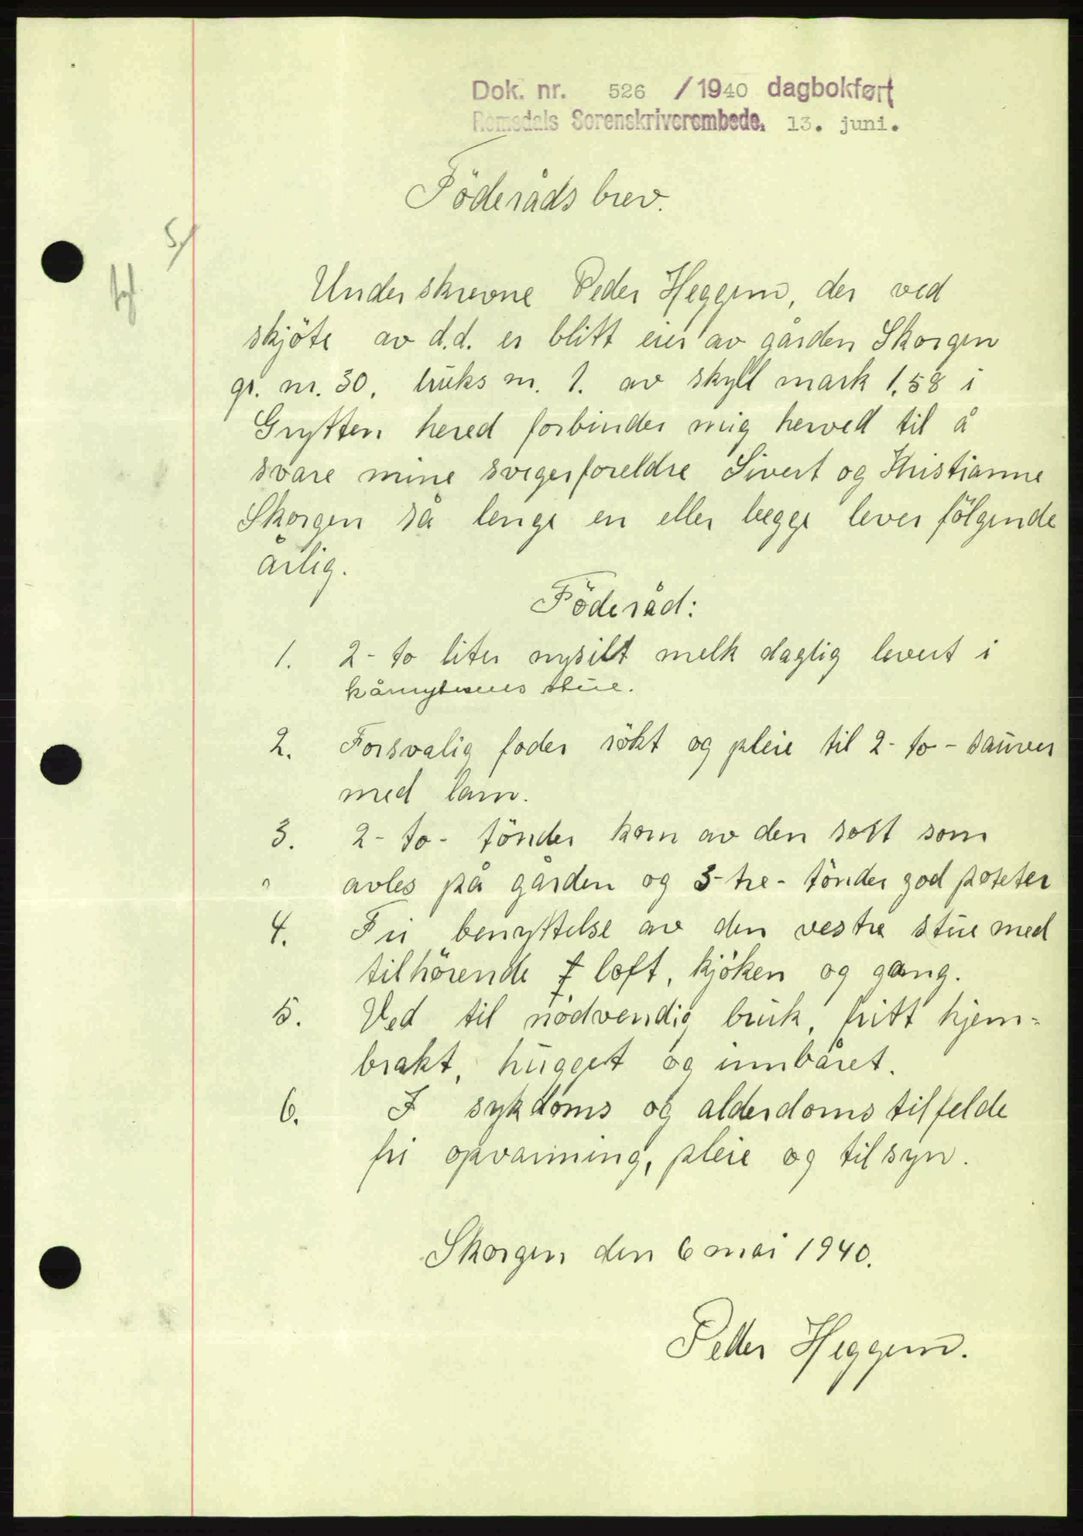 Dok. nr. 526 /1940 dagbokført
Romsdals Sorenskriverembede. 13. juni.
Föderåds brev.
5/
Underskrevne Peder Heggem, der ved
skjöte av d.d. er blitt eier av gården Skorgen
gr. nr. 30, bruks nr. 1. av skyll mark 1,58 i
Grytten hered forbinder mig herved til å
svare mine svigerforeldre Sivert og Kristianne
Skorgen så lenge en eller begge lever fölgende
årlig.
Föderåd:
1. 2- to liter nysilt melk daglig levert i
kårnyternes stue.
2. Forsvalig foder rökt og pleie til 2- to - sauver
med lam.
3. 2- to- tönder korn av den sort som
avles på gården og 3- tre- tönder god poteter
4. Fri benyttelse av den vestre stue med
tilhörende loft, kjöken og gang.
5. Ved til nödvendig bruk, fritt hjem=
brakt, hugget og innbåret.
6. I sykdoms og alderdoms tilfelde
fri opvarming, pleie og tilsyn.
Skorgen den 6 mai 1940.
Peder Heggem.